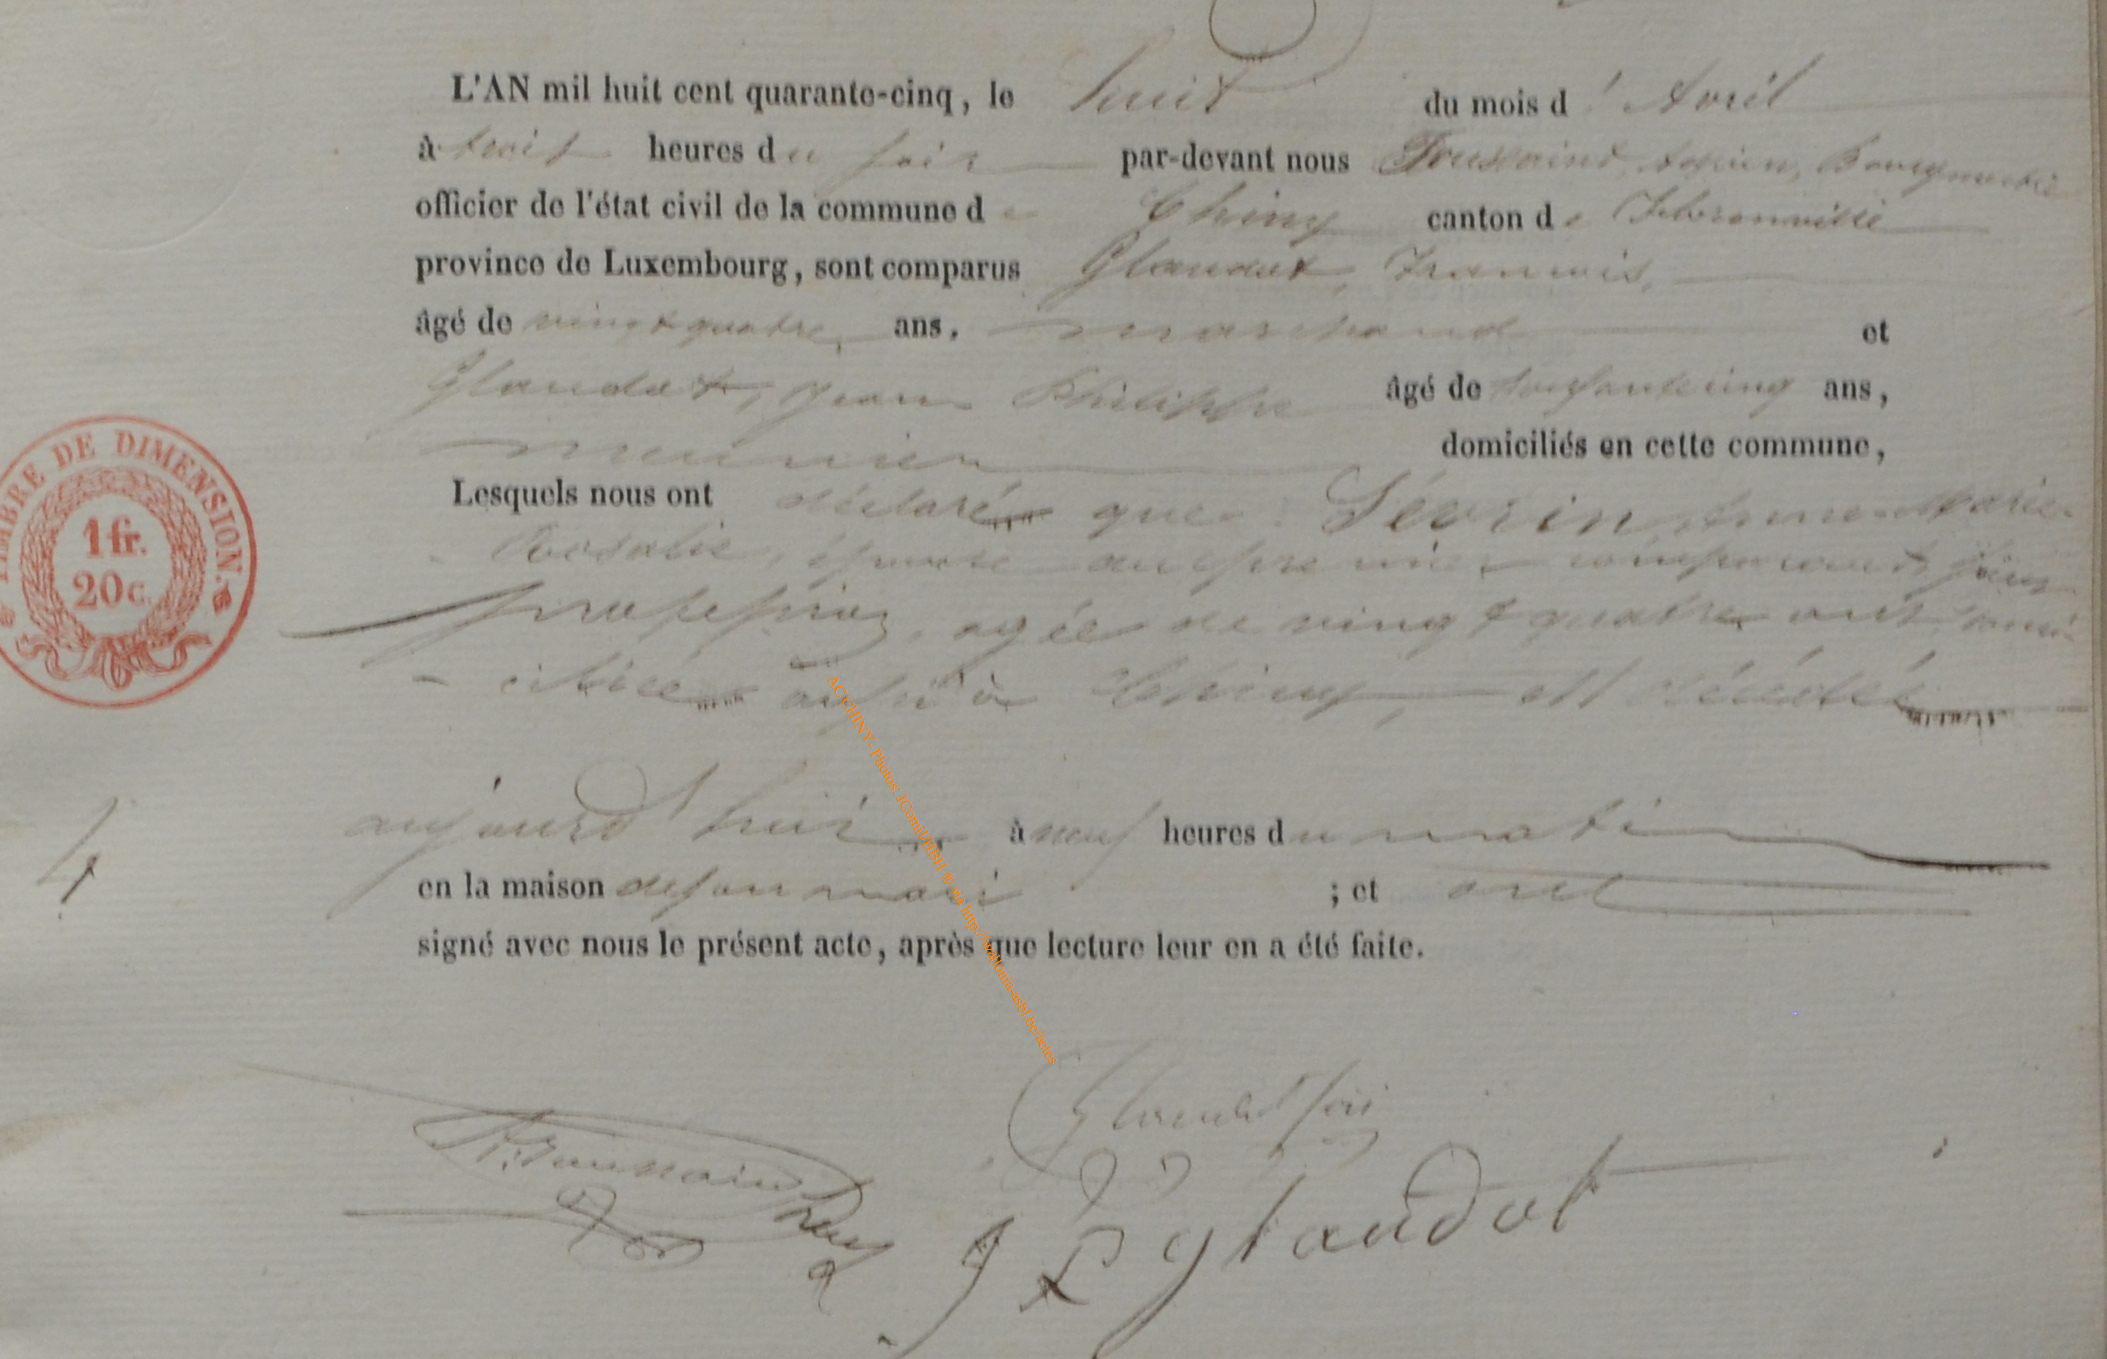 L'AN mil huit cent quarante-cinq, le huit du mois d'Avril
à trois heures du soir par-devant nous Toussaint, Adrien, Bourgmestre
officier de l'état civil de la commune de Chiny canton de Florenville
province de Luxembourg, sont comparus Glaudot, Francois,
âgé de vingt quatre ans, marchand et
Glaudot, Jean Philippe âgé de soixante cinq ans,
meunier domiciliés en cette commune,
Lesquels nous ont déclaré que Sévrin, Anne Marie
Rosalie, épouse au premier comparant, sans
profession, agée de vingt quatre ans, domi-
- ciliée aussi à Chiny, est décédée
aujourd'hui à neuf heures du matin
4
en la maison de son mari ; et ont
signé avec nous le présent acte, après que lecture leur en a été faite.
TIMBRE DE DIMENSION.
1 fr.
20 c.
Glaudot fois
A. Toussaint
J P glaudot